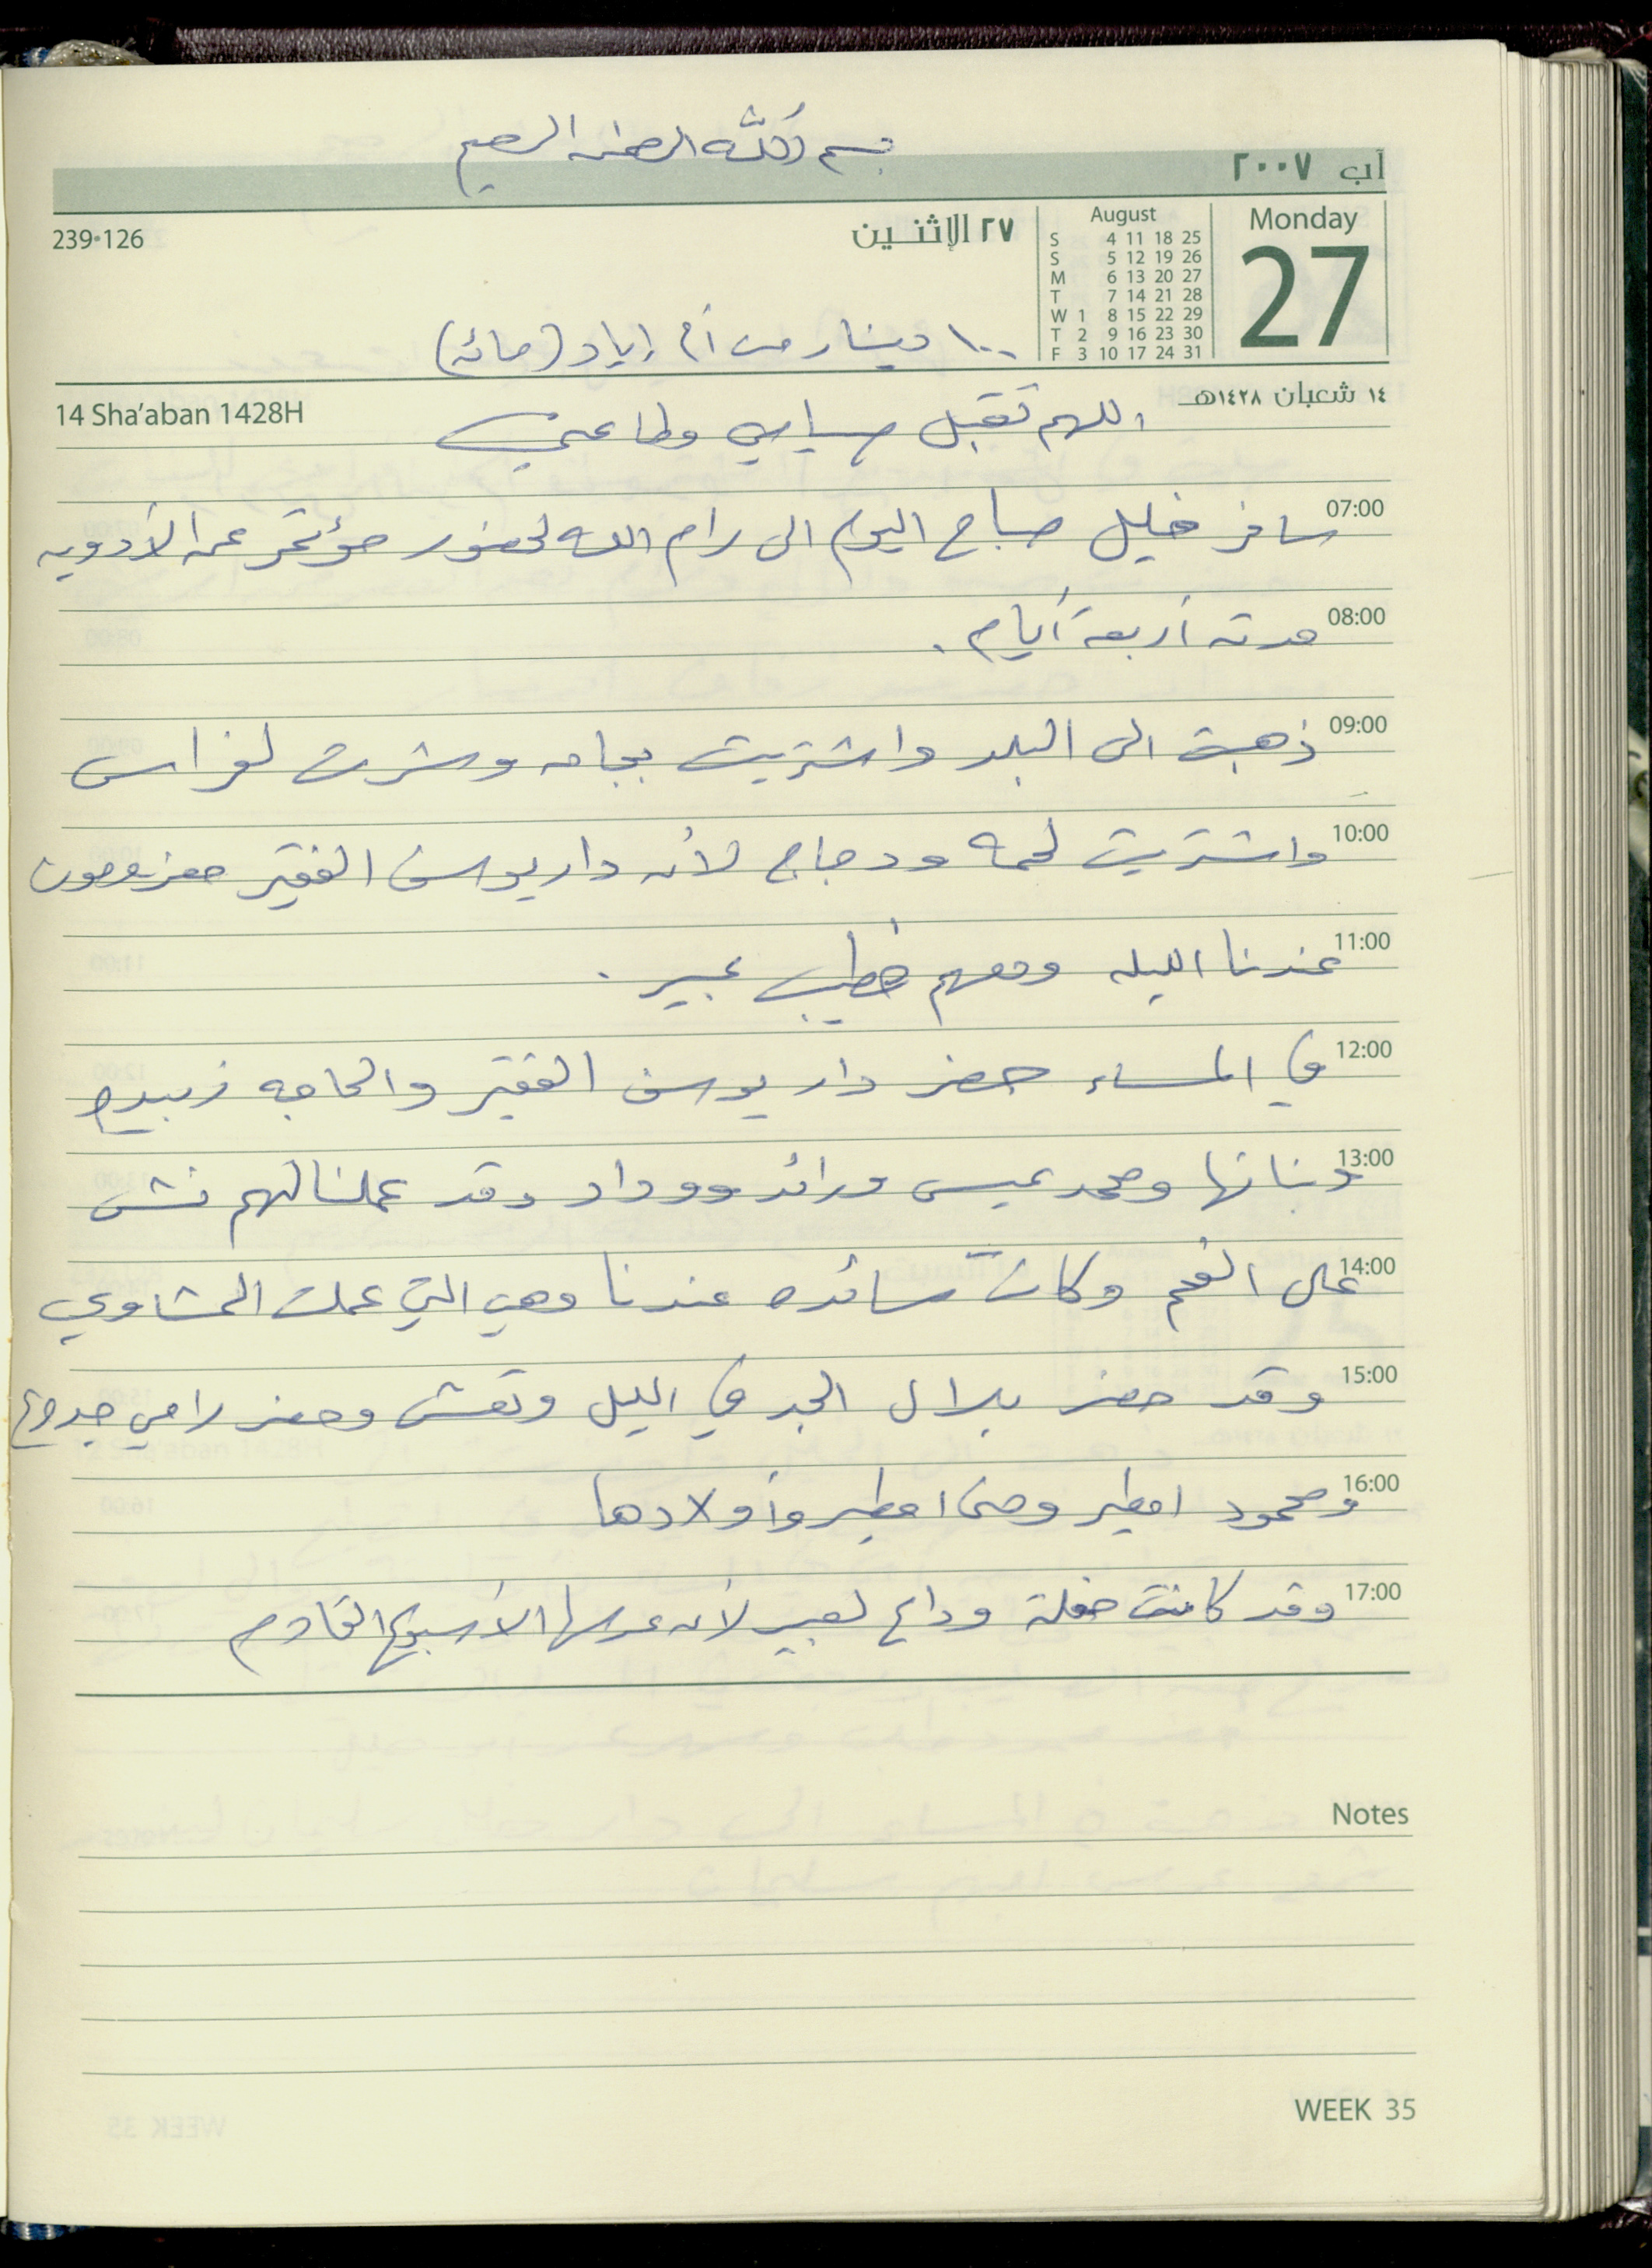 بسم الله الرحمن الرحيم
آب ٢٠٠٧
Monday
27
August
S 4 11 18 25
S 5 12 19 26
M 6 13 20 27
T 7 14 21 28
W 1 8 15 22 29
T 2 9 16 23 30
F 3 10 17 24 31
٢٧ الإثنـــين
239-126
١٠٠ دينار من أم إياد (مائه)
١٤ شعبان ١٤٢٨هـ
14 Sha'aban 1428H
اللهم تقبل صيامي وطاعتي
07:00
سافر خليل صباح اليوم الى رام الله لحضور مؤتمر عن الأدويه
08:00
مدته أربعة أيام .
09:00
ذهبت الى البلد واشتريت بجامه وشرت لفراس
10:00
واشتريت لحمه ودجاج لأن دار يوسف الفقير معزومون
11:00
عندنا الليله ومعهم خطيب عبير .
12:00
في المساء حضر دار يوسف الفقير والحاجه زبيده
13:00
وبناتها ومحمد عيسى ورائد ووداد وقد عملنا لهم نش
14:00
على الفحم وكانت سائده عندنا وهي التي عملت المشاوي
15:00
وقد حضر بلال الجد في الليل وتعشى وحضر رامي جدوع
16:00
ومحمود امطير ومنى امطير وأولادها
17:00
وقد كانت حفلة وداع لعبير لأن عرسها الأسبوع القادم
Notes
WEEK 35